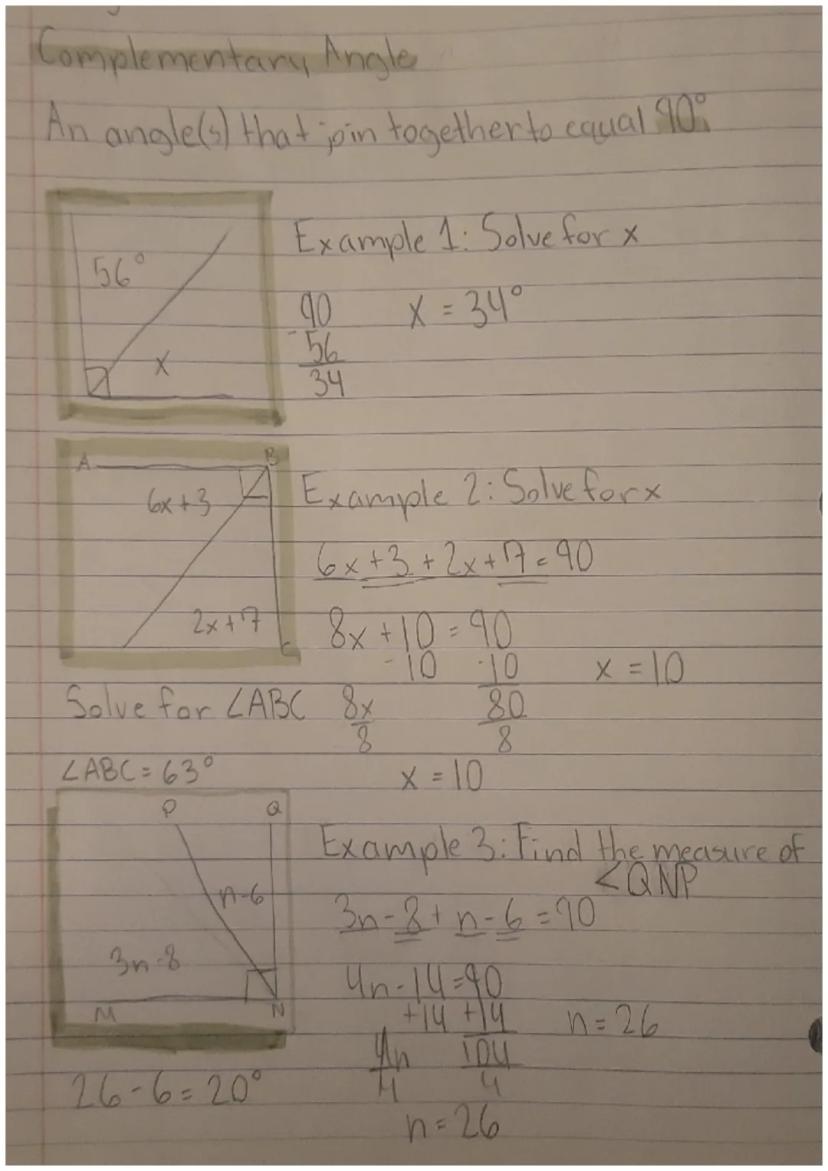 Complementary Angle
An angle(s) that join together to equal 90°
56°
x
Example 1: Solve for x
90 x = 34°
-56
34
A B
6x+3
2x+7
Example 2: Solve for x
6x+3+2x+7=90
8x+10=90
-10 -10 x=10
Solve for ∠ABC 8x 80
8 8
∠ABC=63° x=10
P Q
n-6
3n-8
M N
Example 3: Find the measure of
∠QNP
3n-8+n-6=90
4n-14=90
+14 +14 n=26
4n 104
4 4
26-6=20°
n=26